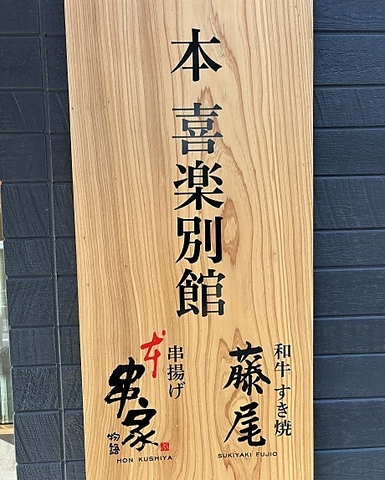 本 喜楽別館
和牛 すき焼
藤尾
SUKIYAKI FUJIO
串揚げ
本
串家
物語
HON KUSHIYA